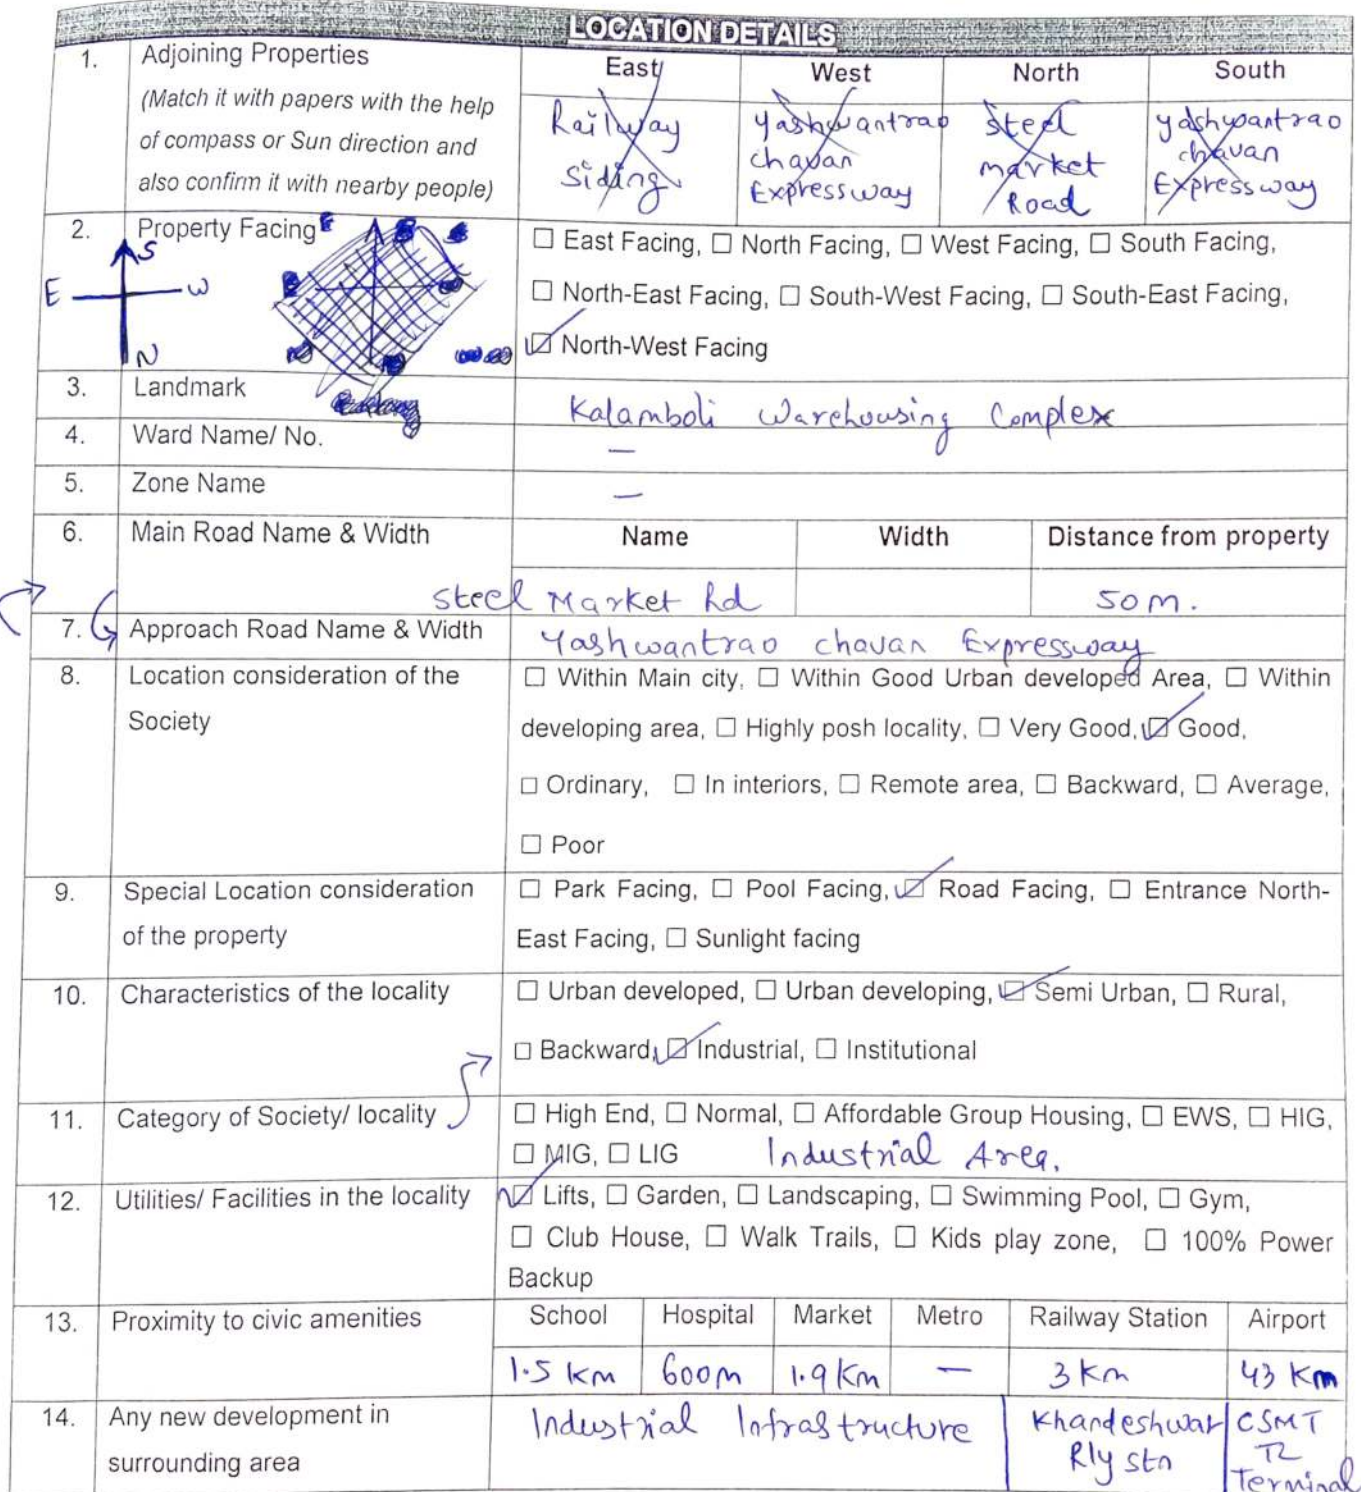 LOCATION DETAILS
1. Adjoining Properties
(Match it with papers with the help
of compass or Sun direction and
also confirm it with nearby people)
East West North South
Railway
Siding
Yashwantrao
chavan
Expressway
Steel
market
Road
Yashwantrao
chavan
Expressway
2. Property Facing
S
E W
N
☐ East Facing, ☐ North Facing, ☐ West Facing, ☐ South Facing,
☐ North-East Facing, ☐ South-West Facing, ☐ South-East Facing,
☑ North-West Facing
3. Landmark Kalamboli Warehousing Complex
4. Ward Name/ No. –
5. Zone Name –
6. Main Road Name & Width Name Width Distance from property
Steel Market Rd 50 m.
7. Approach Road Name & Width Yashwantrao chavan Expressway
8. Location consideration of the
Society
☐ Within Main city, ☐ Within Good Urban developed Area, ☐ Within
developing area, ☐ Highly posh locality, ☐ Very Good, ☑ Good,
☐ Ordinary, ☐ In interiors, ☐ Remote area, ☐ Backward, ☐ Average,
☐ Poor
9. Special Location consideration
of the property
☐ Park Facing, ☐ Pool Facing, ☑ Road Facing, ☐ Entrance North-
East Facing, ☐ Sunlight facing
10. Characteristics of the locality
☐ Urban developed, ☐ Urban developing, ☑ Semi Urban, ☐ Rural,
☐ Backward, ☑ Industrial, ☐ Institutional
11. Category of Society/ locality
☐ High End, ☐ Normal, ☐ Affordable Group Housing, ☐ EWS, ☐ HIG,
☐ MIG, ☐ LIG Industrial Area.
12. Utilities/ Facilities in the locality
☑ Lifts, ☐ Garden, ☐ Landscaping, ☐ Swimming Pool, ☐ Gym,
☐ Club House, ☐ Walk Trails, ☐ Kids play zone, ☐ 100% Power
Backup
13. Proximity to civic amenities
School Hospital Market Metro Railway Station Airport
1.5 Km 600m 1.9 Km – 3 Km 43 Km
14. Any new development in
surrounding area
Industrial Infrastructure
Khandeshwar
Rly Stn
CSMT
T2
Terminal